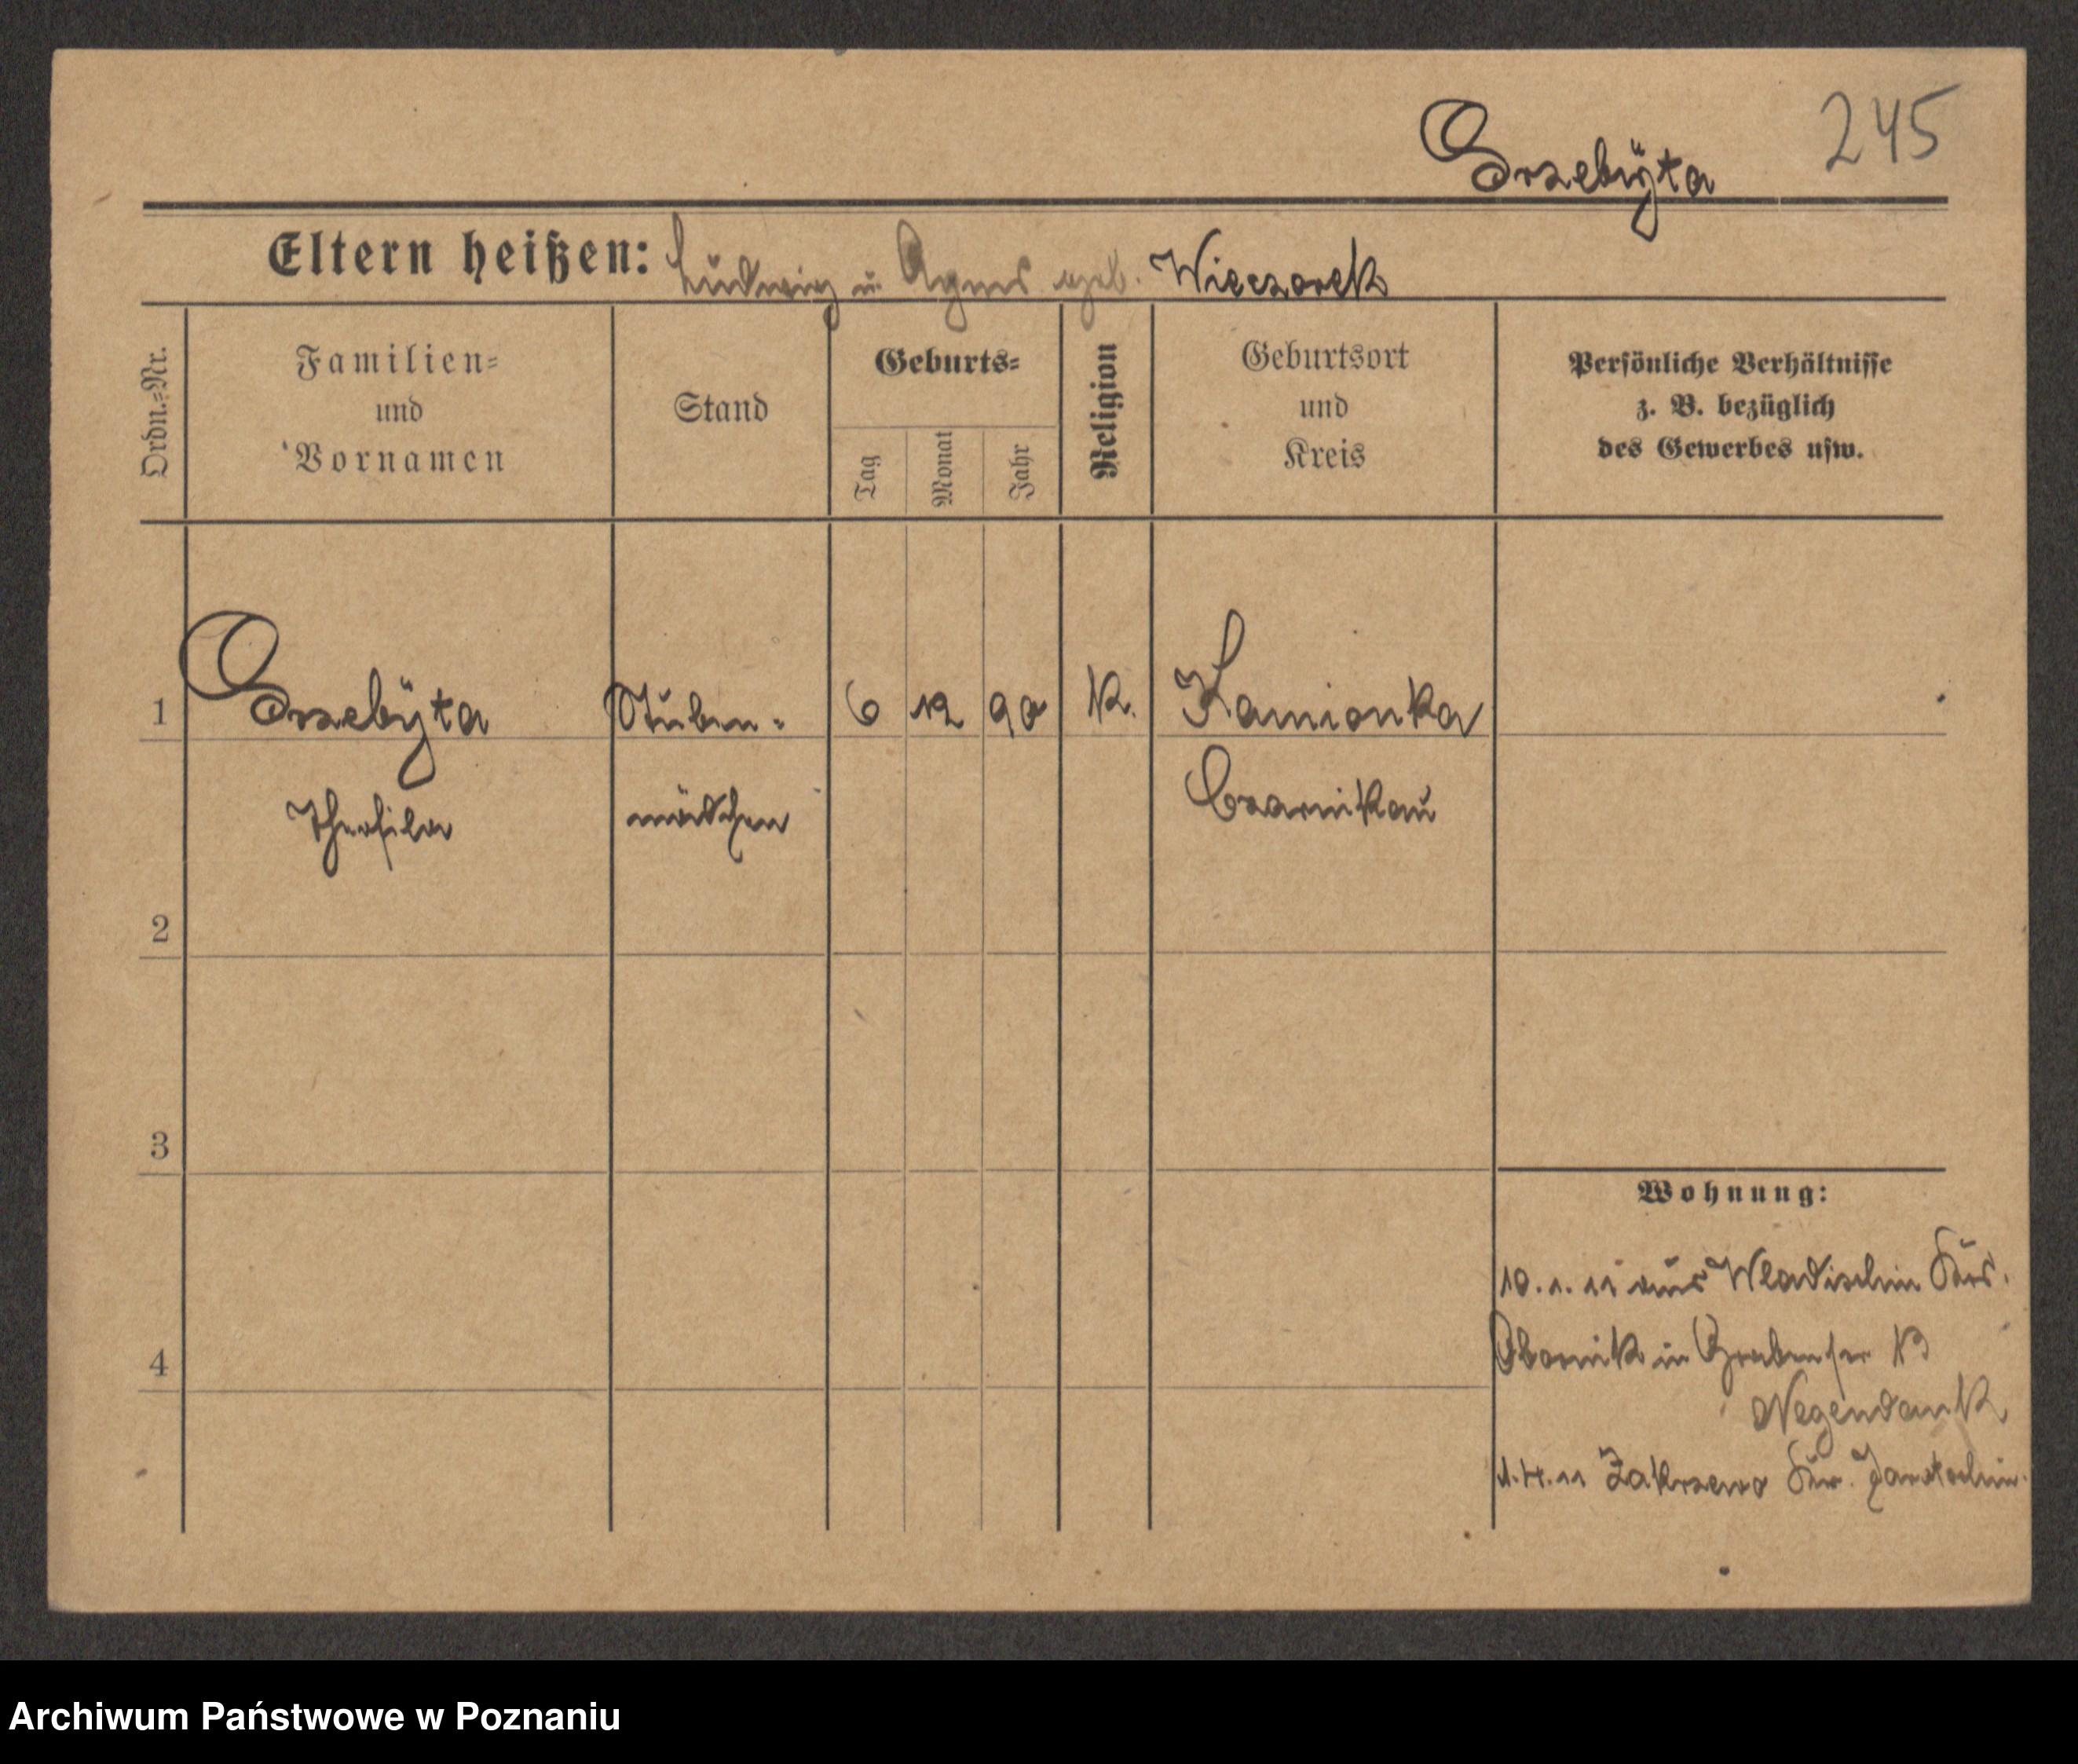 245
Grzebÿta
Eltern heißen: Ludwig u. Agnes geb. Wieczorek
Ordn.=Nr.
Familien=
und
Vornamen
Stand
Geburts=
Tag
Monat
Jahr
Religion
Geburtsort
und
Kreis
Persönliche Verhältnisse
z. B. bezüglich
des Gewerbes usw.
1 Grzebÿta Stuben= 6 12 90 K. Kamionka
Theofila mädchen Czarnikau
2
3
4
Wohnung:
10.1.11 aus Wladischin Krs.
Obornik in 13
Negendank
1.4.11 Zakrzewo Kr. Jarotschin
Archiwum Państwowe w Poznaniu